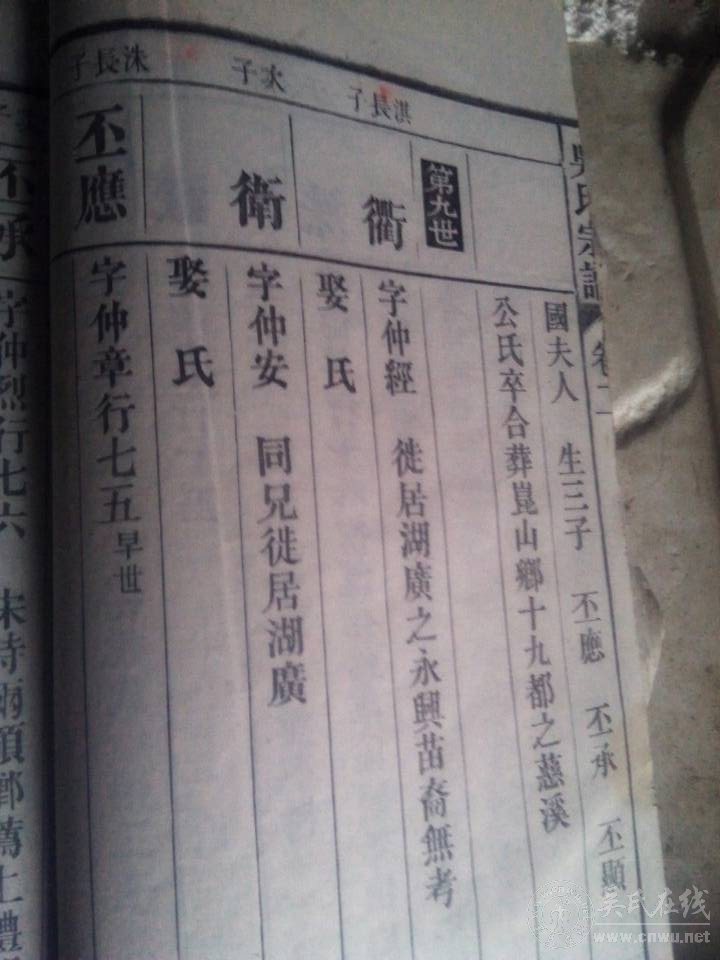 吳氏宗譜 卷十一
國夫人 生三子 丕應 丕承 丕顯
公氏卒合葬崑山鄉十九都之慈溪
第九世
淇長子
衢
字仲經 徙居湖廣之永興苗裔無考
娶氏
次子
衛
字仲安 同兄徙居湖廣
娶氏
洙長子
丕應
字仲章行七五早世
丕承
字仲烈行七六 宋時兩領鄉薦上禮
吴氏在线
www.cnwu.net